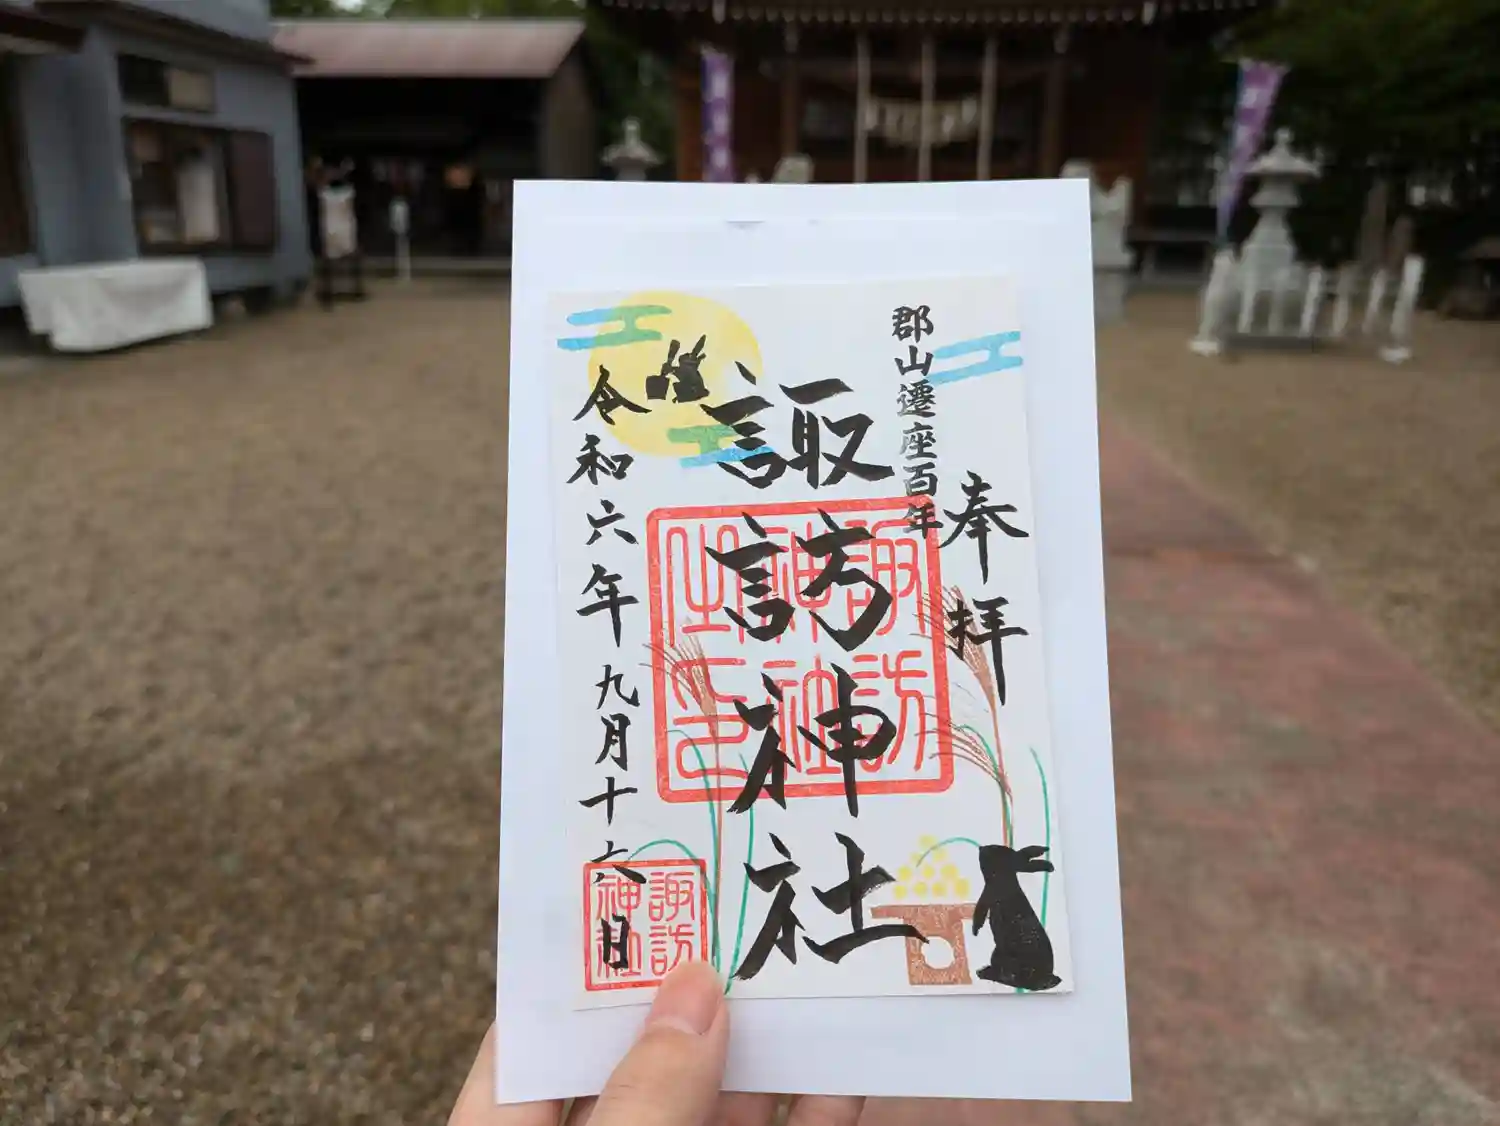 奉拝
郡山遷座百年
諏訪神社
諏訪神社之印
令和六年九月十六日
諏訪神社